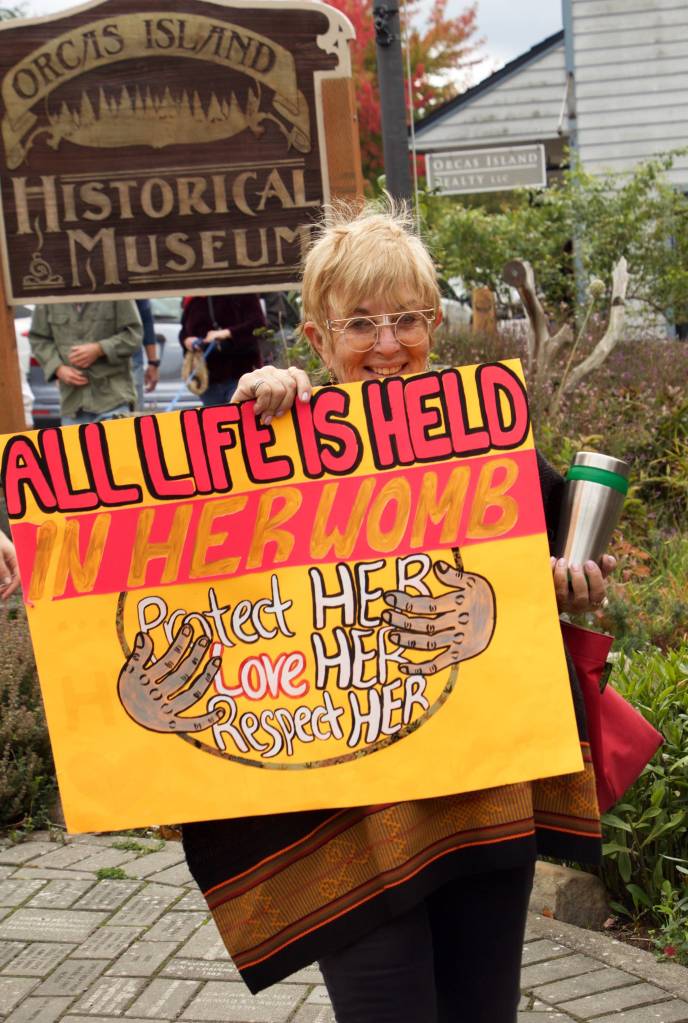 ORCAS ISLAND
HISTORICAL
MUSEUM
ORCAS ISLAND
REALTY LLC
ALL LIFE IS HELD
IN HER WOMB
Protect HER
Love HER
Respect HER